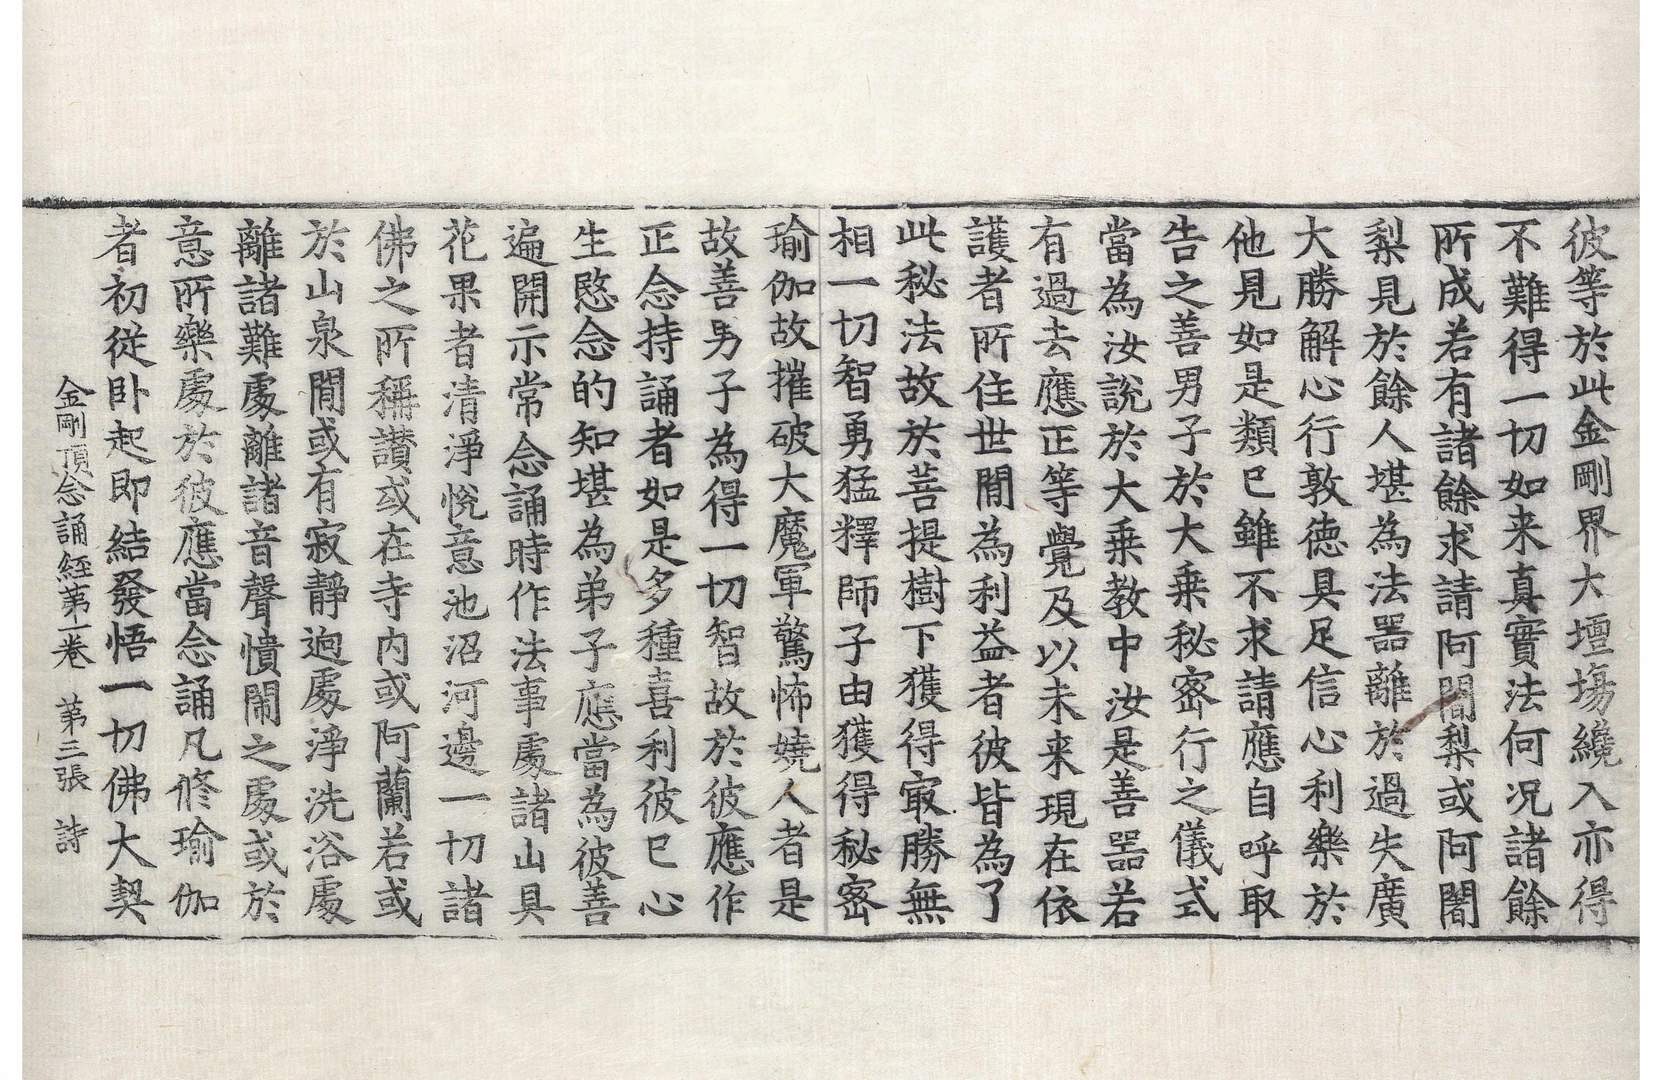 彼等於此金剛界大壇塲纔入亦得
不難得一切如来真實法何况諸餘
所成若有諸餘求請阿闍梨或阿闍
梨見於餘人堪為法器離於過失廣
大勝解心行敦德具足信心利樂於
他見如是類已雖不求請應自呼取
告之善男子於大乗秘密行之儀式
當為汝說於大乗教中汝是善器若
有過去應正等覺及以未来現在依
護者所住世間為利益者彼皆為了
此秘法故於菩提樹下獲得㝡勝無
相一切智勇猛釋師子由獲得秘密
瑜伽故摧破大魔軍驚怖嬈人者是
故善男子為得一切智故於彼應作
正念持誦者如是多種喜利彼已心
生愍念的知堪為弟子應當為彼善
遍開示常念誦時作法事處諸山具
花果者清淨悅意池沼河邊一切諸
佛之所稱讃或在寺内或阿蘭若或
於山泉間或有寂靜逈處淨洗浴處
離諸難處離諸音聲憒閙之處或於
意所樂處於彼應當念誦凡修瑜伽
者初從卧起即結發悟一切佛大契
金剛頂念誦経第一卷　第三張　詩